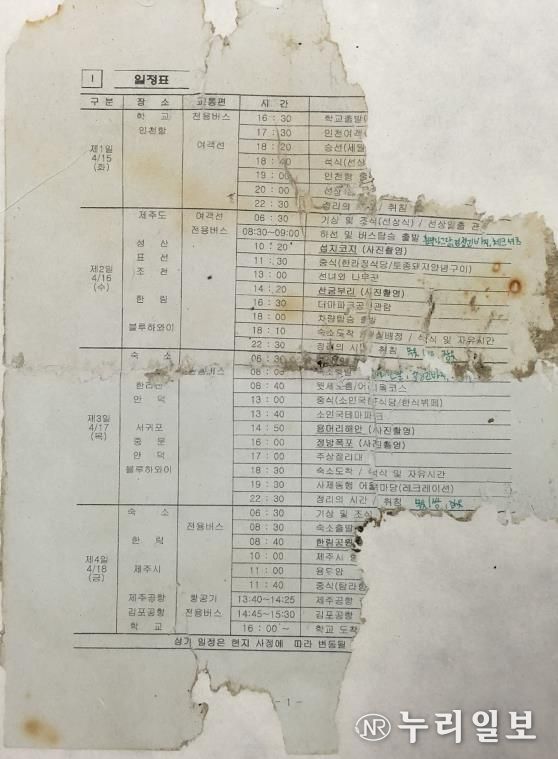 I 일정표
구 분 장 소 교통편 시 간
제1일
4/15
(화)
학 교 전용버스 16 : 30 학교출발
인천항 17 : 30 인천여객
여객선 18 : 20 승선(세월
18 : 40 석식(선상
19 : 00 인천항
20 : 00 선상
22 : 30 정리의 / 취침
제2일
4/16
(수)
제주도 여객선 06 : 30 기상 및 조식(선상식) / 선상일출 관
전용버스 08:30~09:00 하선 및 버스탑승 출발
성 산 10 : 20 섭지코지 (사진촬영)
표 선 11 : 30 중식(한라정식당/토종돼지양념구이)
조 천 13 : 00 선녀와 나무꾼
14 : 20 산굼부리 (사진촬영)
한 림 16 : 30 더마파크공연관람
18 : 00 차량탑승 출발
블루하와이 18 : 10 숙소도착 실배정 / 석식 및 자유시간
22 : 30 정리의 시간 취침
제3일
4/17
(목)
숙 소 06 : 30
08 : 00 숙소출발
한라산 08 : 40 윗세오름/어리목코스
안 덕 13 : 00 중식(소인국 식당/한식뷔페)
13 : 40 소인국테마파크
서귀포 14 : 50 용머리해안 (사진촬영)
중 문 16 : 00 정방폭포 (사진촬영)
안 덕 17 : 00 주상절리대
블루하와이 18 : 30 숙소도착 / 석식 및 자유시간
19 : 30 사제동행 어울 마당(레크레이션)
22 : 30 정리의 시간 / 취침
제4일
4/18
(금)
숙 소 06 : 30 기상 및 조식
전용버스 08 : 30 숙소출발
한 림 08 : 40 한림공원
제주시 10 : 00 제주시
11 : 00 용두암
11 : 40 중식(탐라
제주공항 항공기 13:40~14:25 제주공항
김포공항 전용버스 14:45~15:30 김포공항
학 교 16 : 00 ~ 학교 도착
상기 일정은 현지 사정에 따라 변동될
- 1 -
NR 누리일보